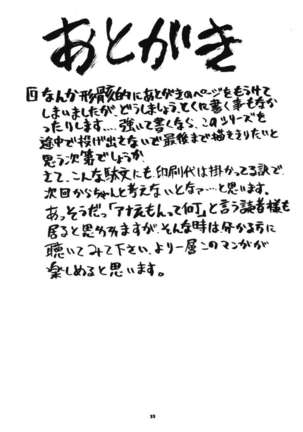 あとがき
なんか形骸的にあとがきのページをもうけて
しまいましたが、どうしましょう、とくに書く事もなか
ったりします....強いて書くなら、このシリーズを
途中で投げ出さないで最後まで描ききりたいと
思う次第でしょうか。
さて、こんな駄文にも印刷代は掛かってる訳で、
次回からちゃんと考えないとなァ…と思います。
あっそうだっ「アナえもんって何」と言う読者様も
居ると思われますが、そんな時は分かる方に
聴いてみて下さい、より一層このマンガが
楽しめると思います。